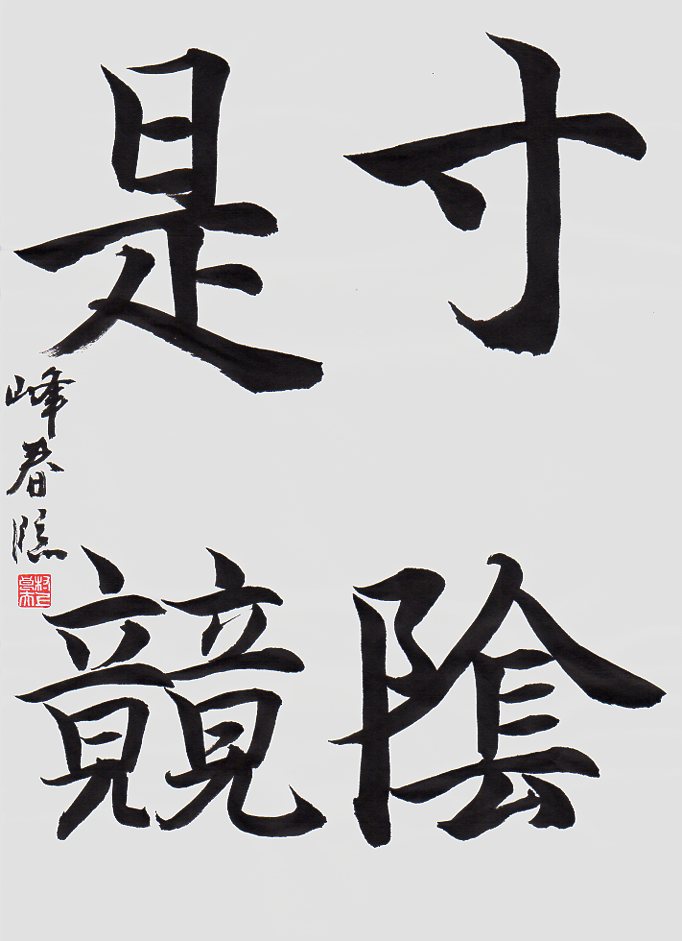 寸陰
是競
峰春臨